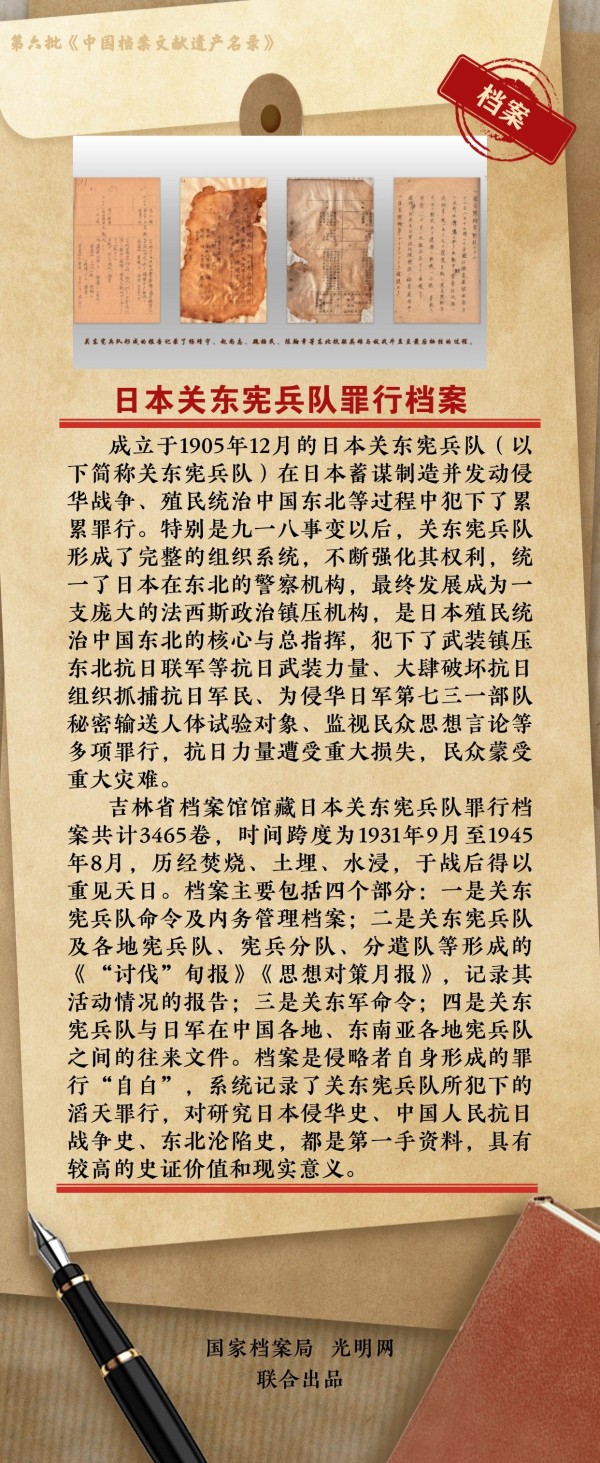 第六批《中国档案文献遗产名录》
档案
关东宪兵队形成的报告记录了杨靖宇、赵尚志、魏拯民、陈翰章等东北抗联英雄与敌战斗直至最后牺牲的过程。
日本关东宪兵队罪行档案
成立于1905年12月的日本关东宪兵队（以
下简称关东宪兵队）在日本蓄谋制造并发动侵
华战争、殖民统治中国东北等过程中犯下了累
累罪行。特别是九一八事变以后，关东宪兵队
形成了完整的组织系统，不断强化其权利，统
一了日本在东北的警察机构，最终发展成为一
支庞大的法西斯政治镇压机构，是日本殖民统
治中国东北的核心与总指挥，犯下了武装镇压
东北抗日联军等抗日武装力量、大肆破坏抗日
组织抓捕抗日军民、为侵华日军第七三一部队
秘密输送人体试验对象、监视民众思想言论等
多项罪行，抗日力量遭受重大损失，民众蒙受
重大灾难。
吉林省档案馆馆藏日本关东宪兵队罪行档
案共计3465卷，时间跨度为1931年9月至1945
年8月，历经焚烧、土埋、水浸，于战后得以
重见天日。档案主要包括四个部分：一是关东
宪兵队命令及内务管理档案；二是关东宪兵队
及各地宪兵队、宪兵分队、分遣队等形成的
《“讨伐”旬报》《思想对策月报》，记录其
活动情况的报告；三是关东军命令；四是关东
宪兵队与日军在中国各地、东南亚各地宪兵队
之间的往来文件。档案是侵略者自身形成的罪
行“自白”，系统记录了关东宪兵队所犯下的
滔天罪行，对研究日本侵华史、中国人民抗日
战争史、东北沦陷史，都是第一手资料，具有
较高的史证价值和现实意义。
国家档案局 光明网
联合出品